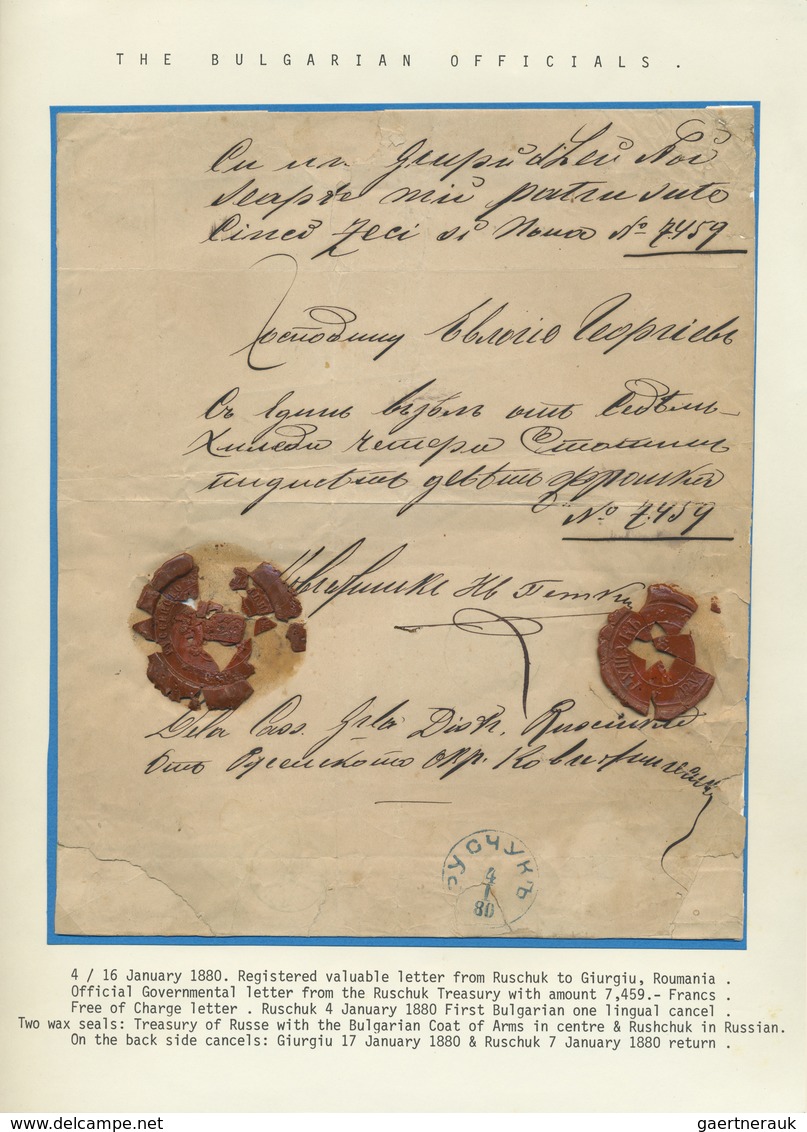 THE BULGARIAN OFFICIALS .
Cu un Grupŭ d Leĭ Noĭ
Șeapte miĭ patru sute
Cincĭ Zeci si Noua № 7.459
Господину Евлогіо Георгіевъ
Съ Единъ възелъ отъ Седѣмь-
Хиледи четери Стотинъ
пидисетъ деветь франка
№ 7.459
Dela Cas. Grlă Distr. Rusciuk
Отъ Русенското Окр. Ковчежниче
РУСЧУКЪ
4
I
80
РУШУКЪ
4 / 16 January 1880. Registered valuable letter from Ruschuk to Giurgiu, Roumania .
Official Governmental letter from the Ruschuk Treasury with amount 7,459.- Francs .
Free of Charge letter . Ruschuk 4 January 1880 First Bulgarian one lingual cancel .
Two wax seals: Treasury of Russe with the Bulgarian Coat of Arms in centre & Rushchuk in Russian.
On the back side cancels: Giurgiu 17 January 1880 & Ruschuk 7 January 1880 return .
www.delcampe.net
gaertnerauk